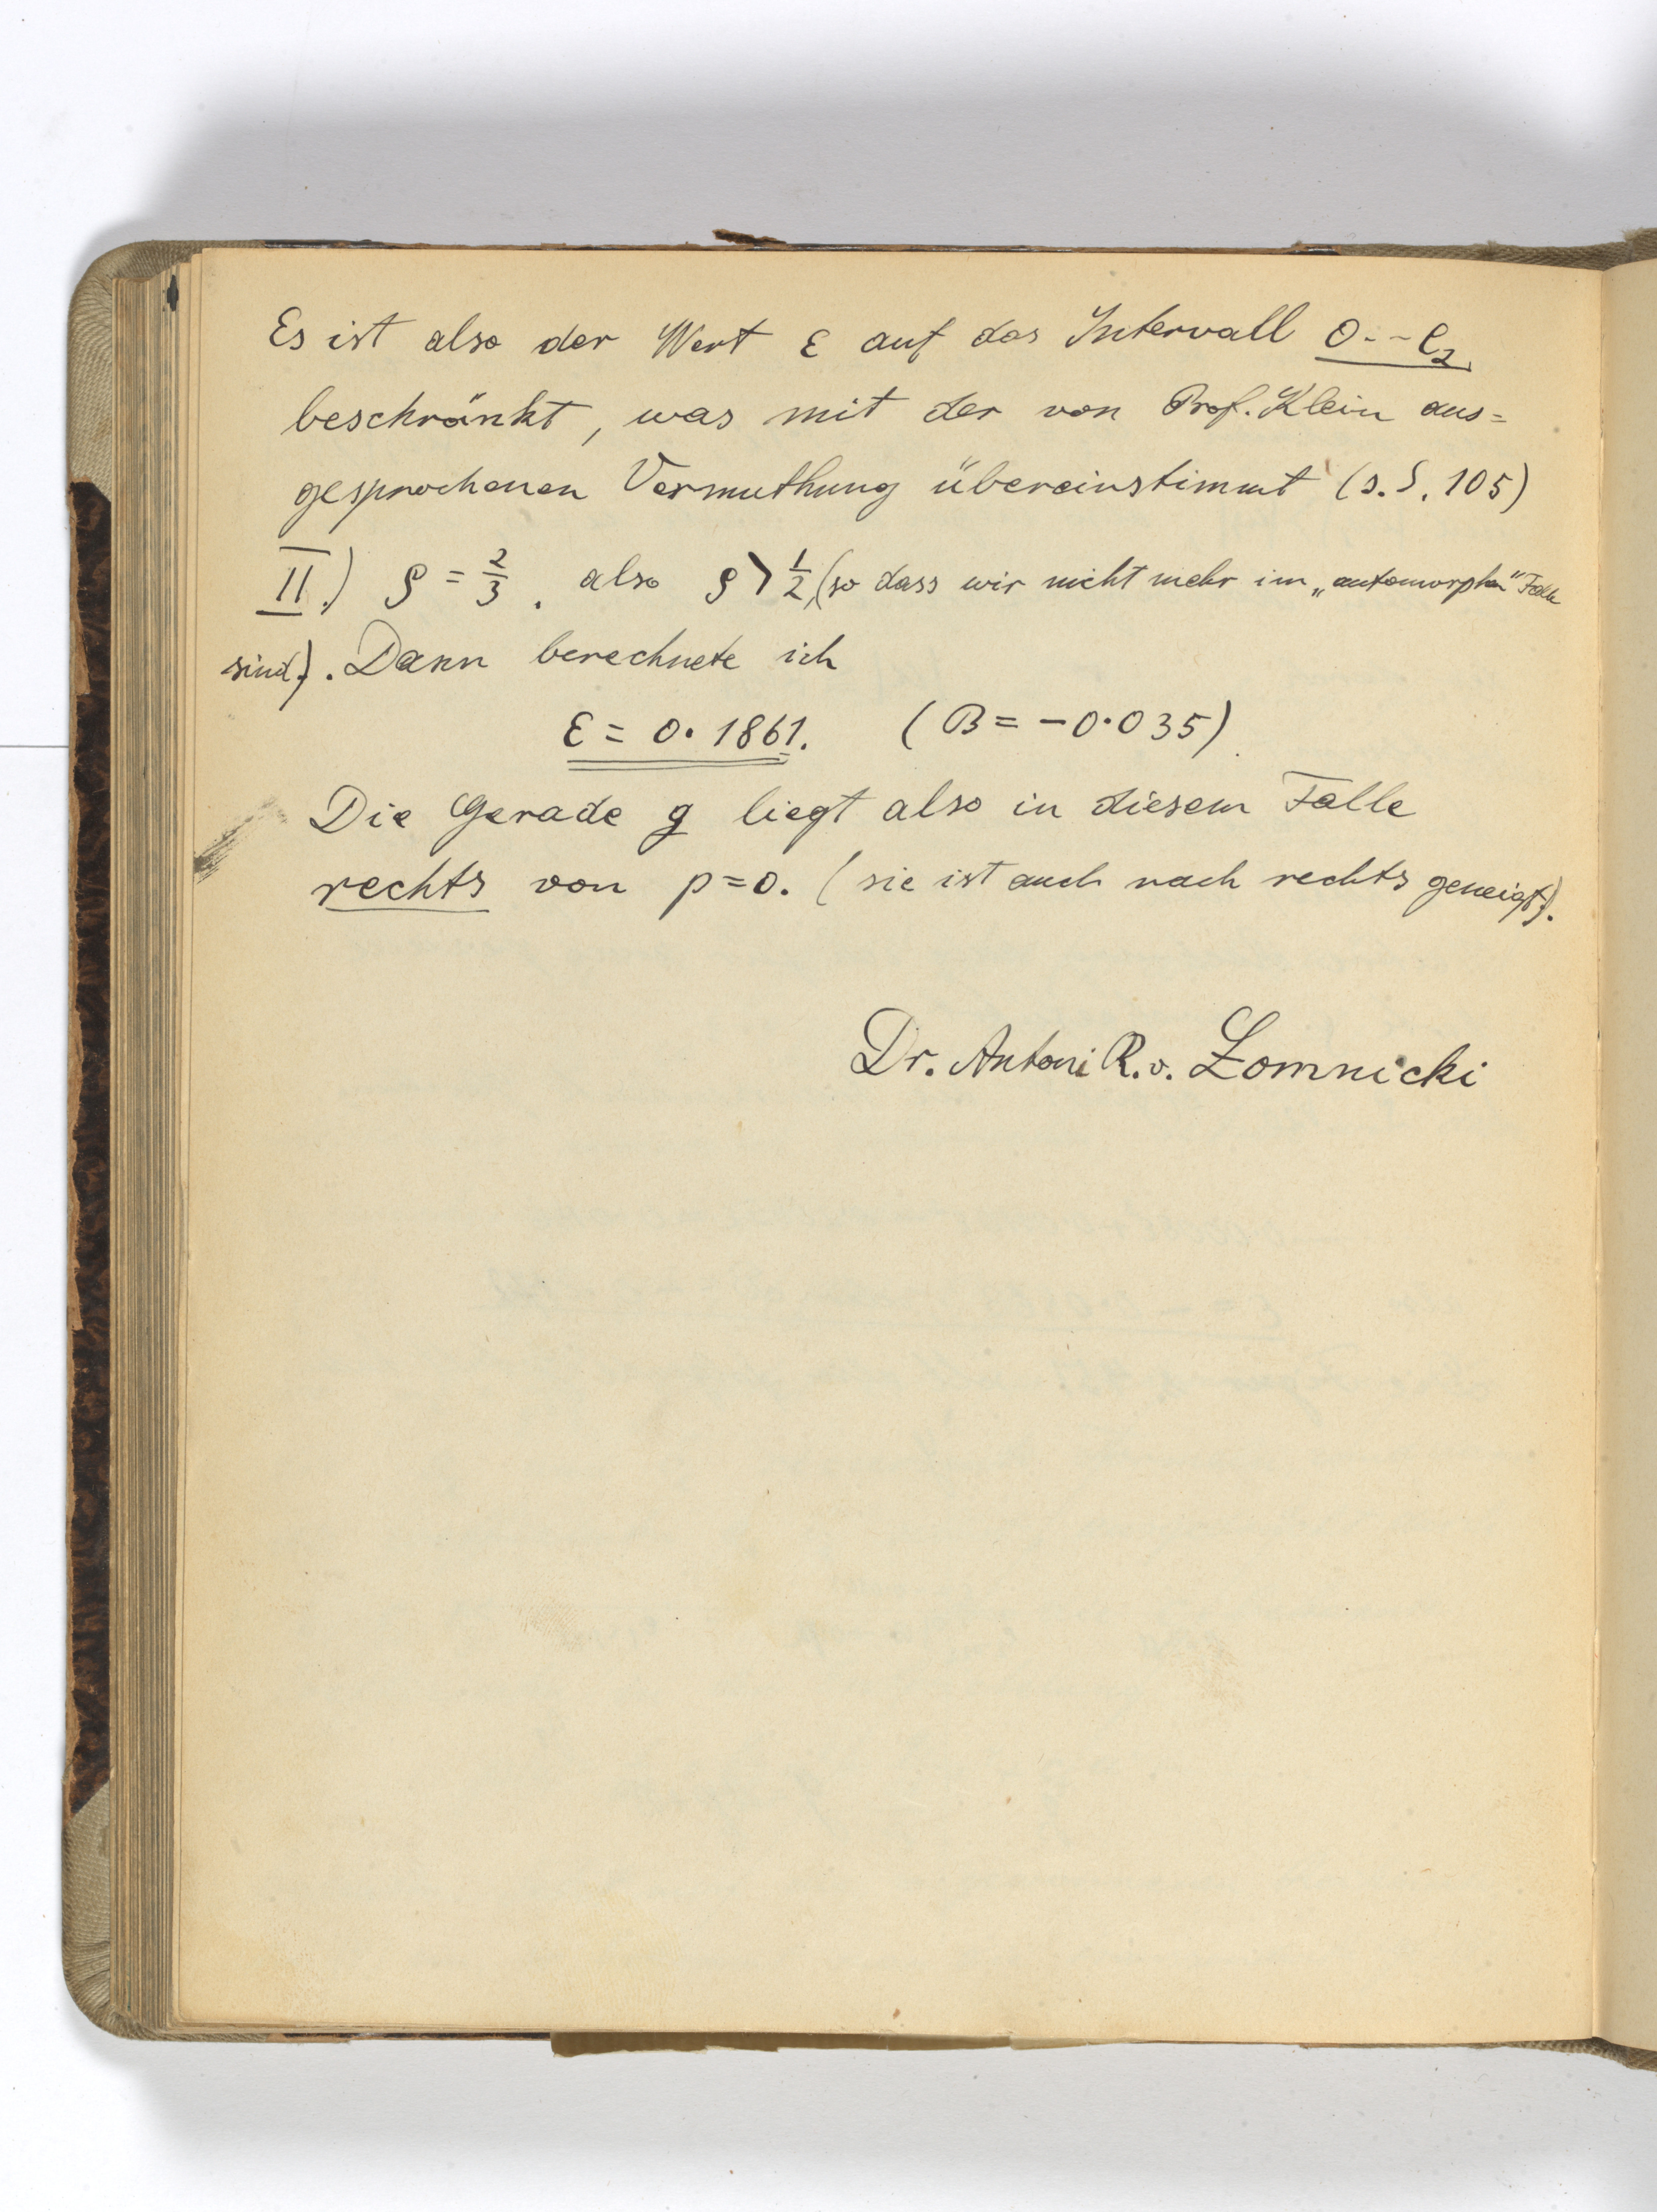 Es ist also der Wert ε auf das Intervall 0--e₂
beschränkt, was mit der von Prof. Klein aus=
gesprochenen Vermuthung übereinstimmt (s. S. 105)
II.) ρ = 2/3. also ρ > 1/2, (so dass wir nicht mehr im „automorphen" Falle
sind). Dann berechnete ich
ε = 0.1861. (B = -0.035)
Die Gerade g liegt also in diesem Falle
rechts von p=0. (sie ist auch nach rechts geneigt).
Dr. Antoni R. v. Łomnicki